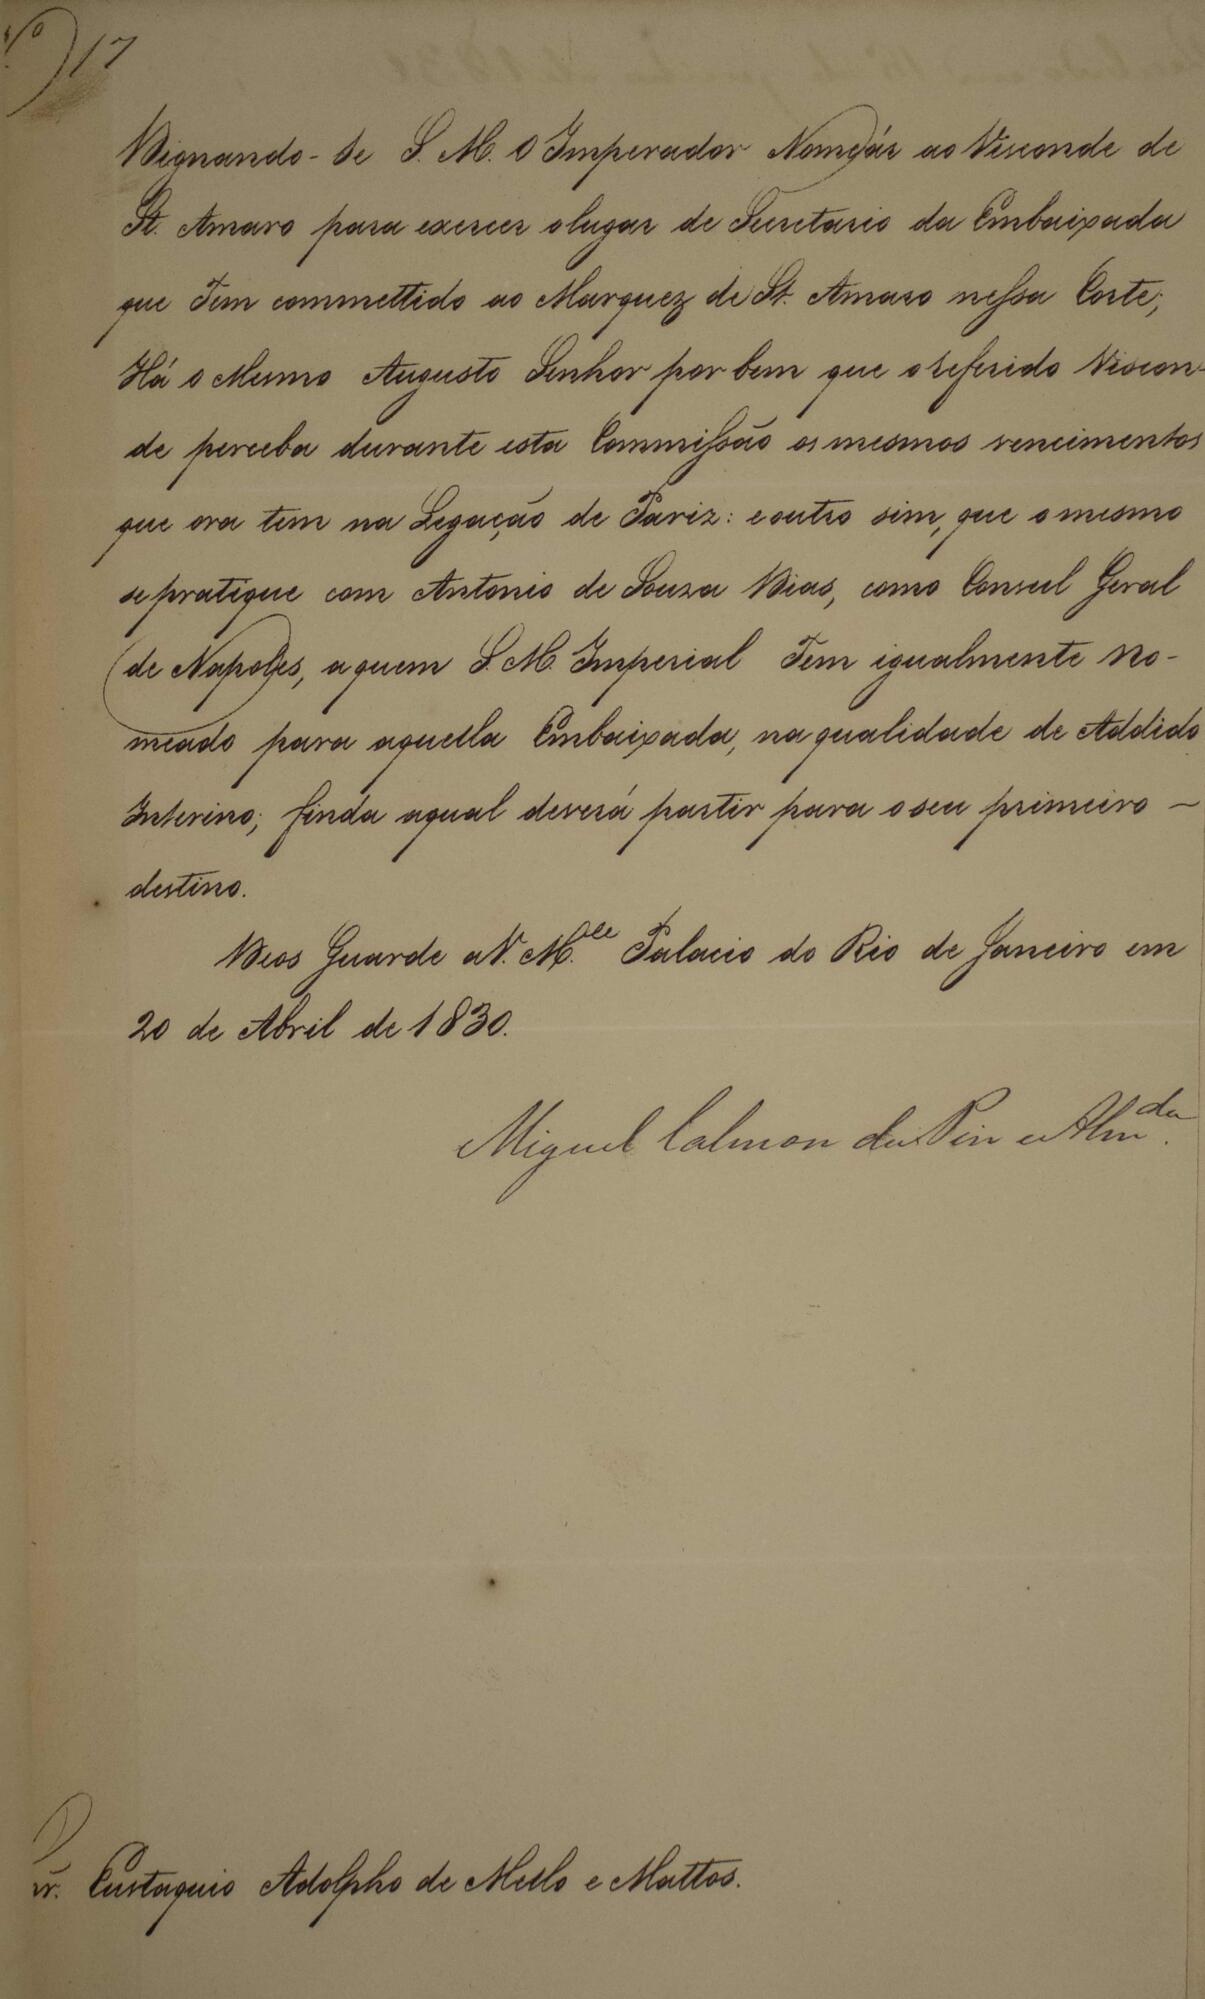 Nº 17
Dignando-Se S. M. O Imperador Nomeár ao Visconde de
St. Amaro para exercer o lugar de Secretario da Embaixada
que Tem commettido ao Marquez de St. Amaro nessa Corte;
Há o Mesmo Augusto Senhor por bem que o referido Viscon-
de perceba durante esta Commissão os mesmos vencimentos
que ora tem na Legação de Pariz: e outro sim, que o mesmo
se pratique com Antonio de Souza Dias, como Consul Geral
de Napoles, a quem S. M. Imperial Tem igualmente no-
meado para aquella Embaixada, na qualidade de Addido
Interino; finda a qual deverá partir para o seu primeiro
destino.
Deos Guarde a V. M.ce Palacio do Rio de Janeiro em
20 de Abril de 1830.
Miguel Calmon du Pin e Alm.da
Sr. Eustaquio Adolpho de Mello e Mattos.